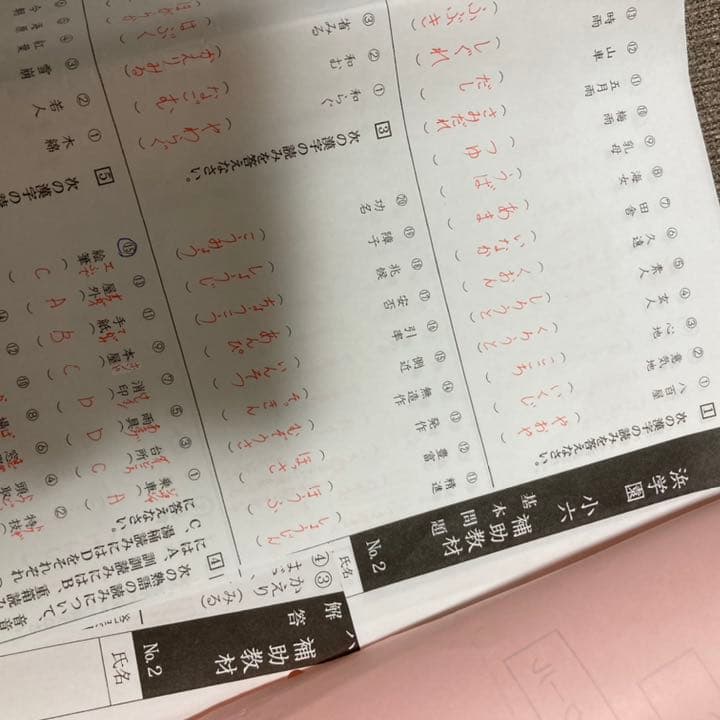 浜学園
小六 補助教材
基本問題
No.2
氏名
1 次の漢字の読みを答えなさい。
① 八百屋 (やおや)
② 意気地 (いくじ)
③ 心地 (ここち)
④ 玄人 (くろうと)
⑤ 素人 (しろうと)
⑥ 久遠 (くおん)
⑦ 田舎 (いなか)
⑧ 海女 (あま)
⑨ 乳母 (うば)
⑩ 梅雨 (つゆ)
⑪ 五月雨 (さみだれ)
⑫ 山車 (だし)
⑬ 時雨 (しぐれ)
(ふぶき)
⑪ 精進 (しょうじん)
⑫ 豊富 (ほうふ)
⑬ 発作 (ほっさ)
⑭ 無造作 (むぞうさ)
⑮ 側近 (そっきん)
⑯ 引率 (いんそつ)
⑰ 安否 (あんぴ)
⑱ 兆候 (ちょうこう)
⑲ 障子 (しょうじ)
⑳ 功名 (こうみょう)
3 次の漢字の読みを答えなさい。
① 和らぐ (やわらぐ)
② 和む (なごむ)
③ 省みる (かえりみる)
(はぶく)
4 次の熟語の読みについて、音音
には A、訓訓読みには B、重箱読み
C、湯桶読みには D をそれぞれ
に答えなさい。
① 乗車 (A)
② 特技
③ 台所 (C)
④ 頭取
⑤ 雨具 (D)
⑥ 窓
⑦ 消印 (D)
⑧ 場
⑨ 本屋 (C)
⑩
⑪ 手紙 (B)
⑬ 屋外 (A)
⑮ 絵筆 (C)
5 次の漢字の
① 木綿
② 若人
③ 雪崩
④ 紅葉
解答
補助教材
No.2
氏名
③ かえり(みる)
④